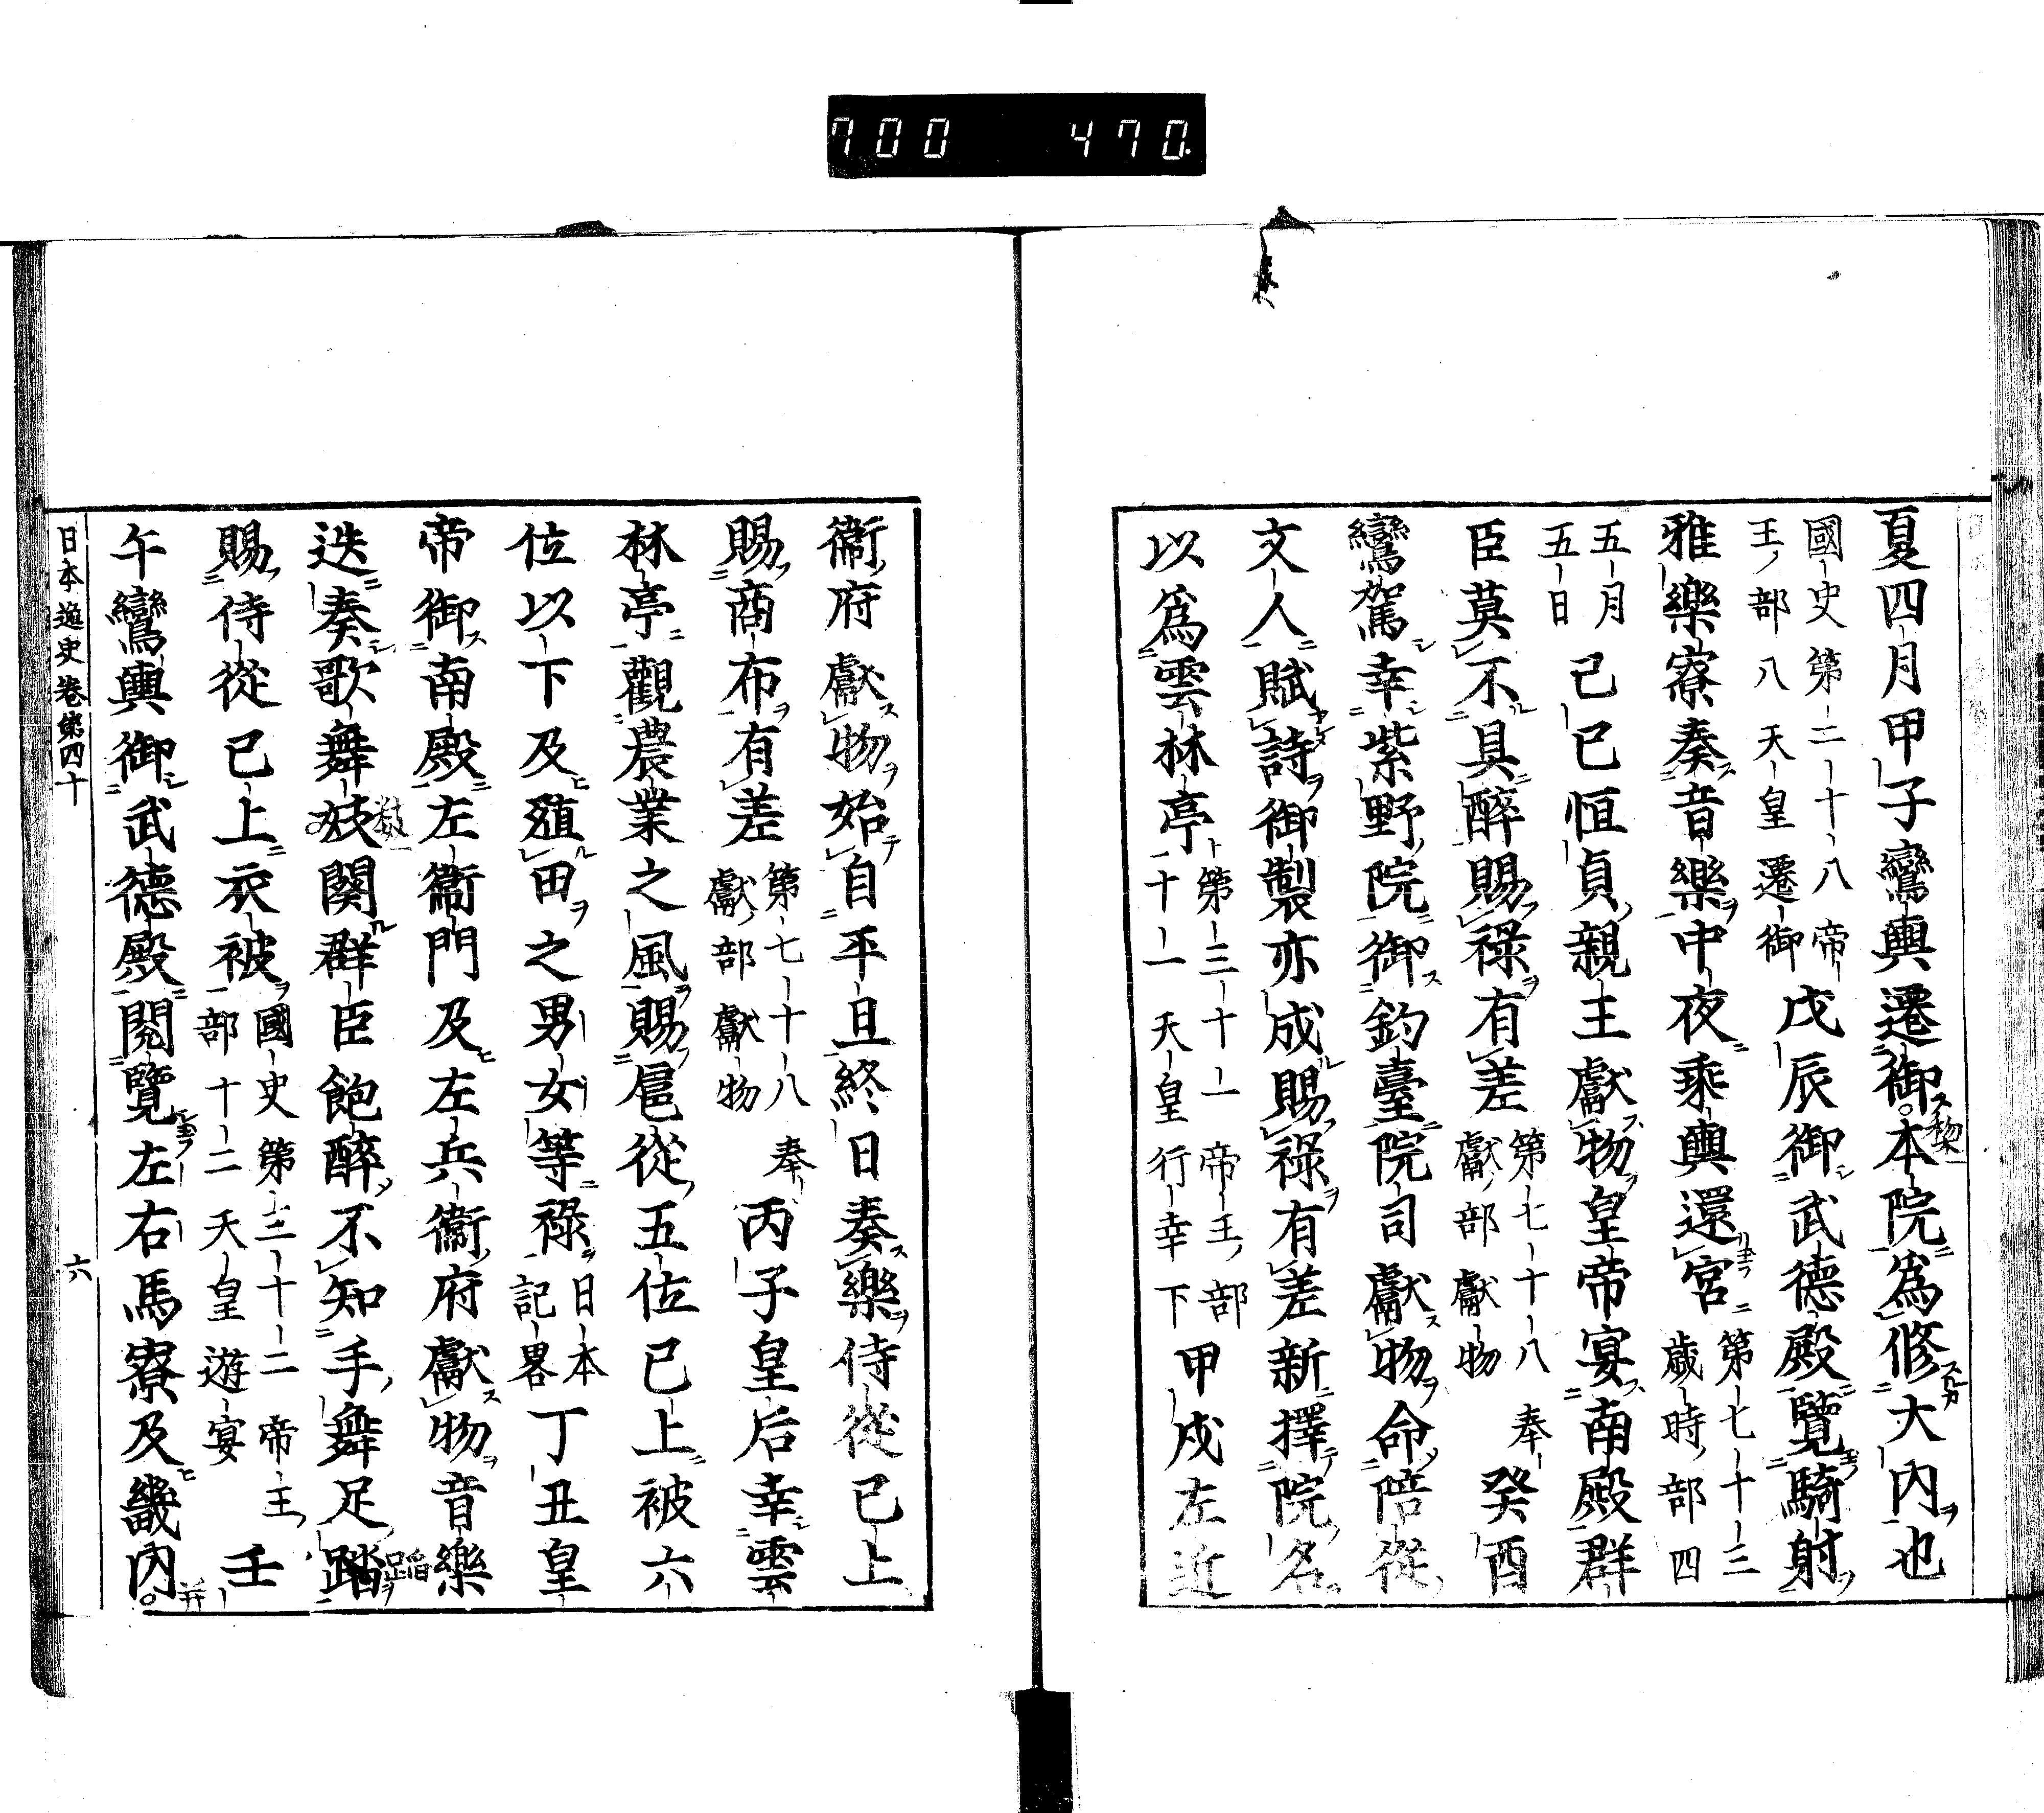 700 470
夏四月甲子鸞輿遷御本院爲修大內也
國史第二十八帝
王部八天皇遷御
戊辰御武德殿覽騎射
雅樂寮奏音樂中夜乘輿還宮
第七十三
歲時部四
五月
五日
己巳恒貞親王獻物皇帝宴南殿群
臣莫不具醉賜祿有差
第七十八
獻部獻物
奉
癸酉
鸞駕幸紫野院御釣臺院司獻物命陪從
文人賦詩御製亦成賜祿有差新擇院名
以爲雲林亭
第三十一帝王部
十一天皇行幸下
甲戌左近
衞府獻物始自平旦終日奏樂侍從已上
賜商布有差
第七十八
獻部獻物
奉
丙子皇后幸雲
林亭觀農業之風賜扈從五位已上被六
位以下及殖田之男女等祿
日本
記畧
丁丑皇
帝御南殿左衞門及左兵衞府獻物音樂
迭奏歌舞妓闋群臣飽醉不知手舞足踏
蹈
賜侍從已上衣被
國史第三十二帝王
部十二天皇遊宴
壬
午鸞輿御武德殿閱覽左右馬寮及畿內
幷
日本逸史卷第四十
六